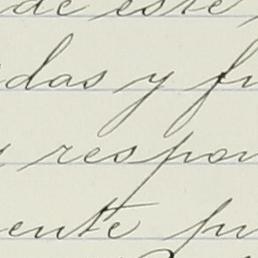 de este
das y fu
y respon
ente fu